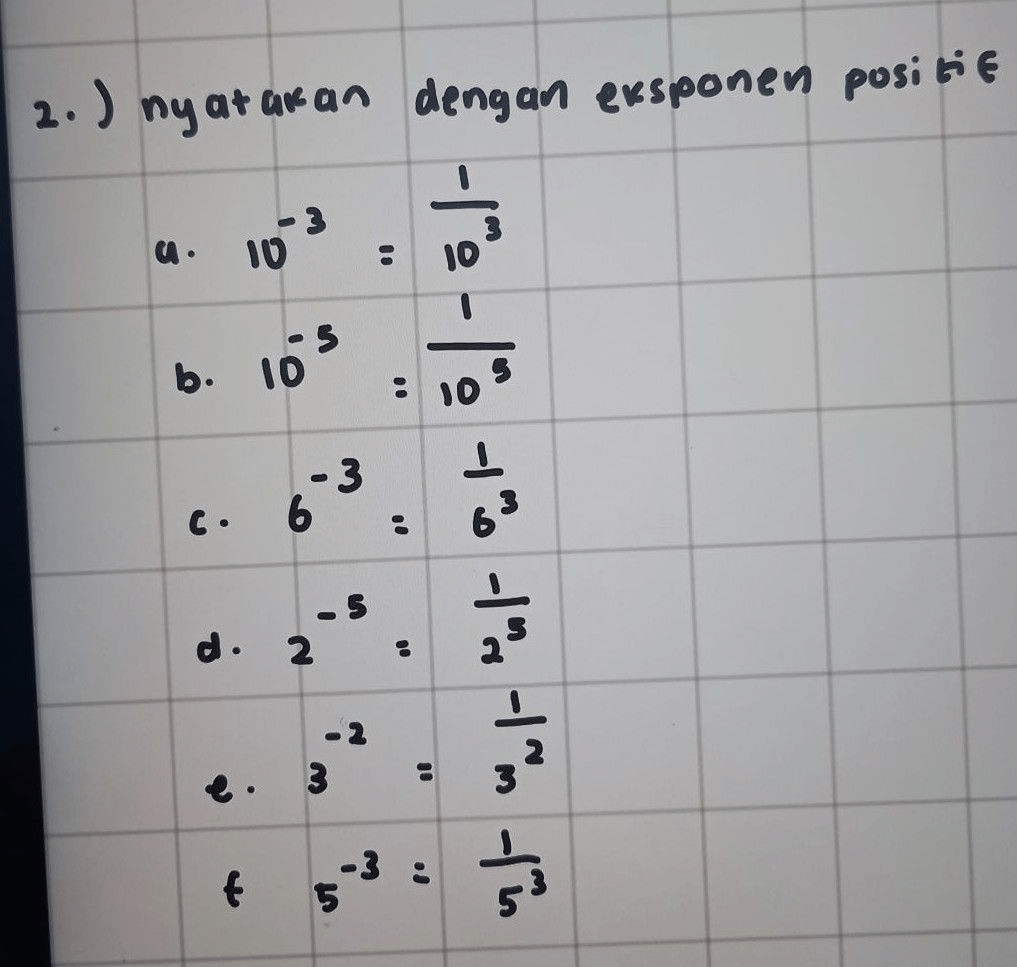 2.) nyatakan dengan eksponen positif
a. 10⁻³ = 1/10³
b. 10⁻⁵ = 1/10⁵
c. 6⁻³ = 1/6³
d. 2⁻⁵ = 1/2⁵
e. 3⁻² = 1/3²
f 5⁻³ = 1/5³